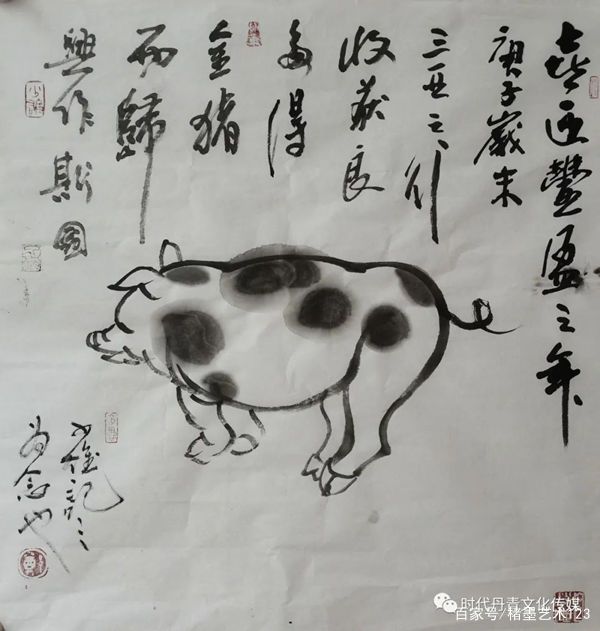 喜迎豐盈之年
庚子歲末
三亚之行
收获良
多得
金猪
而歸
興作斯圖
少雄記之
为念也
时代丹青文化传媒
百家号/楮墨艺术123